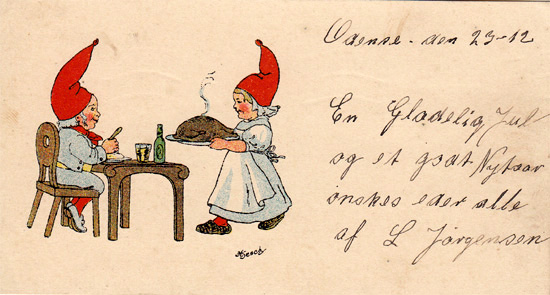 Odense - den 23-12
En Glædelig Jul
og et godt Nytaar
ønskes eder alle
af L Jørgensen